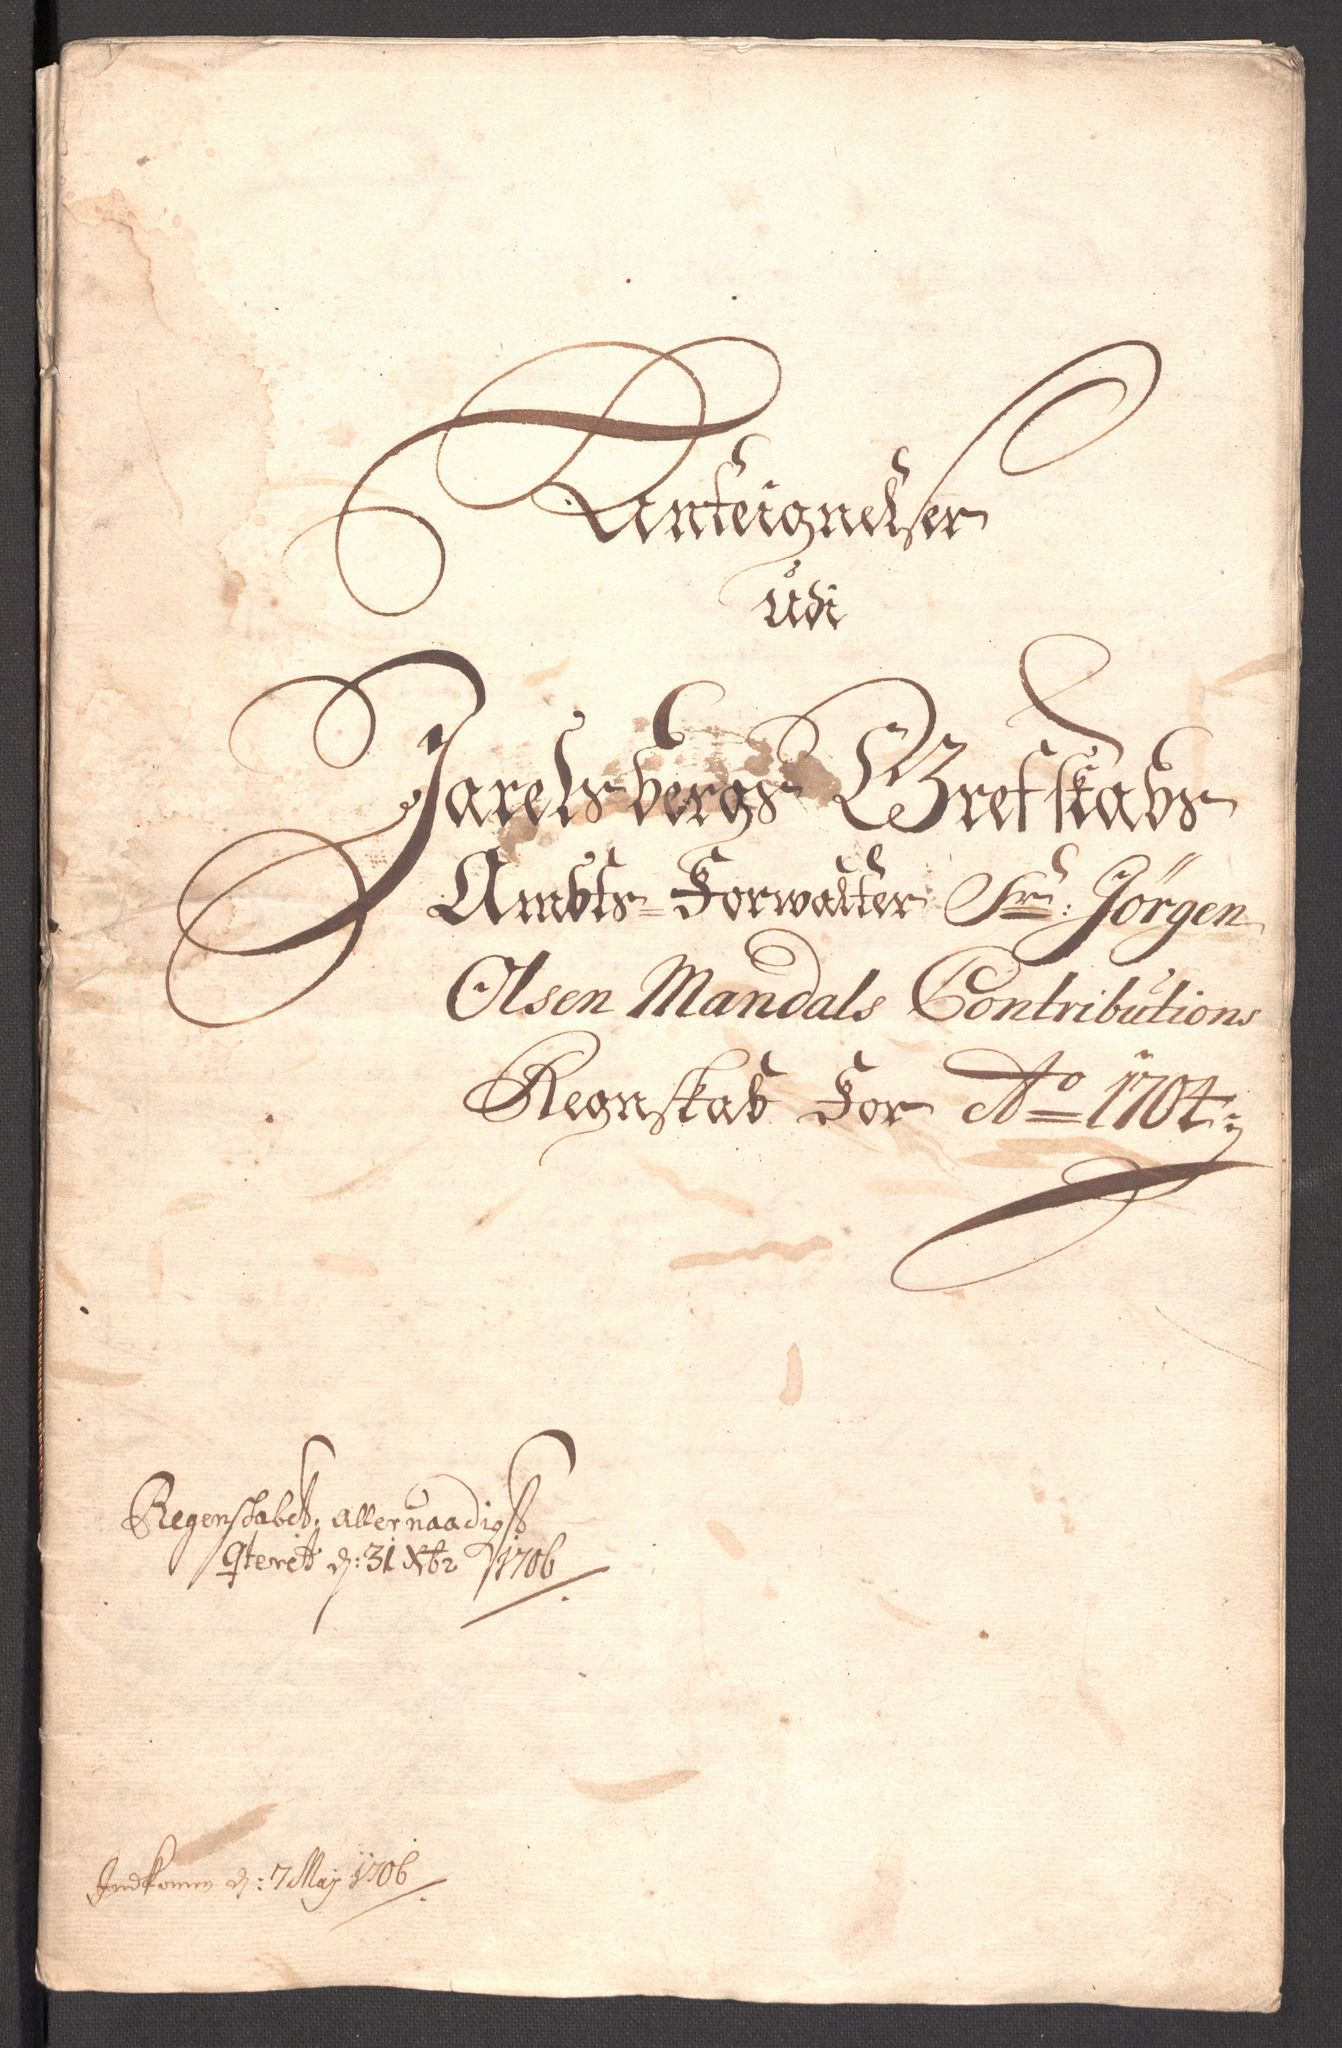 Anteignelser
udi
Jarelsbergs Grefskabs
Ambts-Forwalter Sr: Jørgen
Olsen Mandals Contributions
Regnskab For Ao 1704
Regenskabet allernaadigst
qterit d: 31 Xbr 1706
Indkomen d: 7 Maj 1706